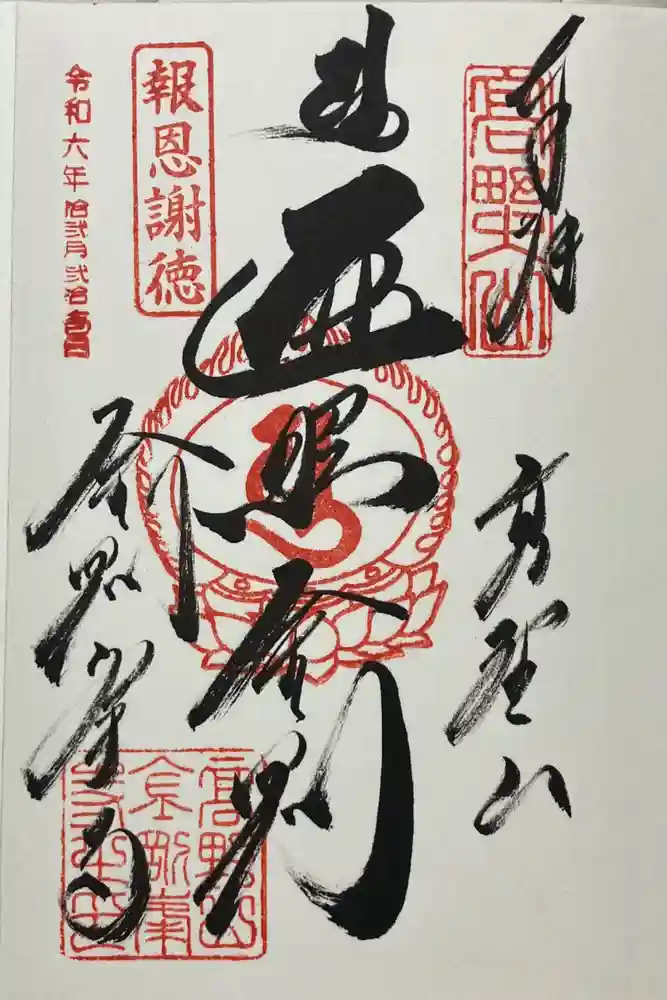 奉拝
高野山
高野山
遍照金剛
報恩謝徳
令和六年拾弐月弐拾壱日
金剛峯寺
高野山
金剛峯